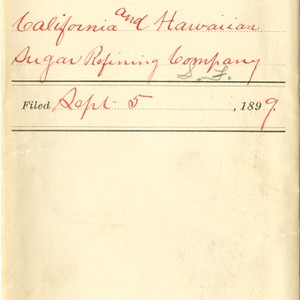 California and Hawaiian
Sugar Refining Company
S. F.
Filed Sept 5, 1899.